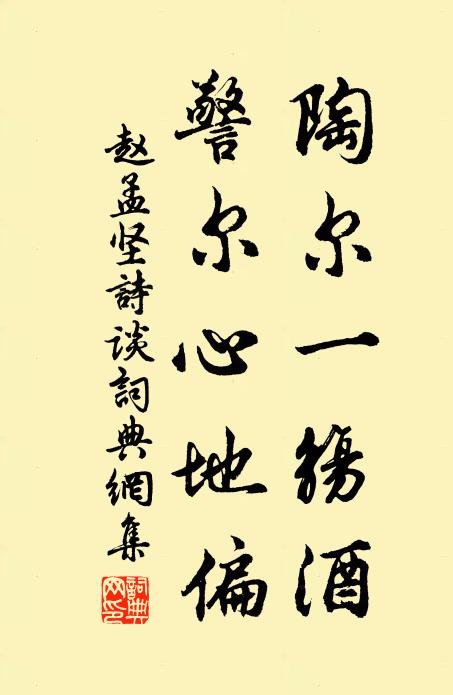 陶尔一觴酒
警尔心地偏
赵孟坚詩谈詞典網集
詞典